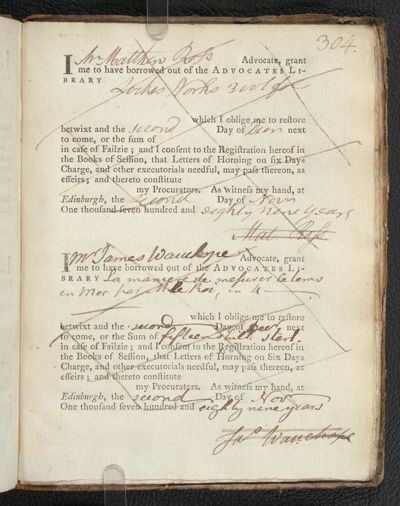 304.
I Mr Matthew Ross Advocate, grant
me to have borrowed out of the ADVOCATES LI-
BRARY Lockes Works 3 vol fol
which I oblige me to restore
betwixt and the second Day of Decer next
to come, or the sum of
in case of Failzie; and I consent to the Registration hereof in
the Books of Session, that Letters of Horning on six Days
Charge, and other executorials needful, may pass thereon, as
effeirs; and thereto constitute
my Procurators. As witness my hand, at
Edinburgh, the second Day of Novr
One thousand seven hundred and eighty nine years
Mat. Ross
I Mr James Wauchope Advocate, grant
me to have borrowed out of the ADVOCATES LI-
BRARY La maniere de mesurer le tems
en Mer par Le Roi, in 4
which I oblige me to restore
betwixt and the second Day of Decer next
to come, or the Sum of fifteen shill. sterl.
in case of Failzie; and I consent to the Registration hereof in
the Books of Session, that Letters of Horning on six Days
Charge, and other executorials needful, may pass thereon, as
effeirs; and thereto constitute
my Procurators. As witness my hand, at
Edinburgh, the second Day of Novr
One thousand seven hundred and eighty nine years
Jas Wauchope